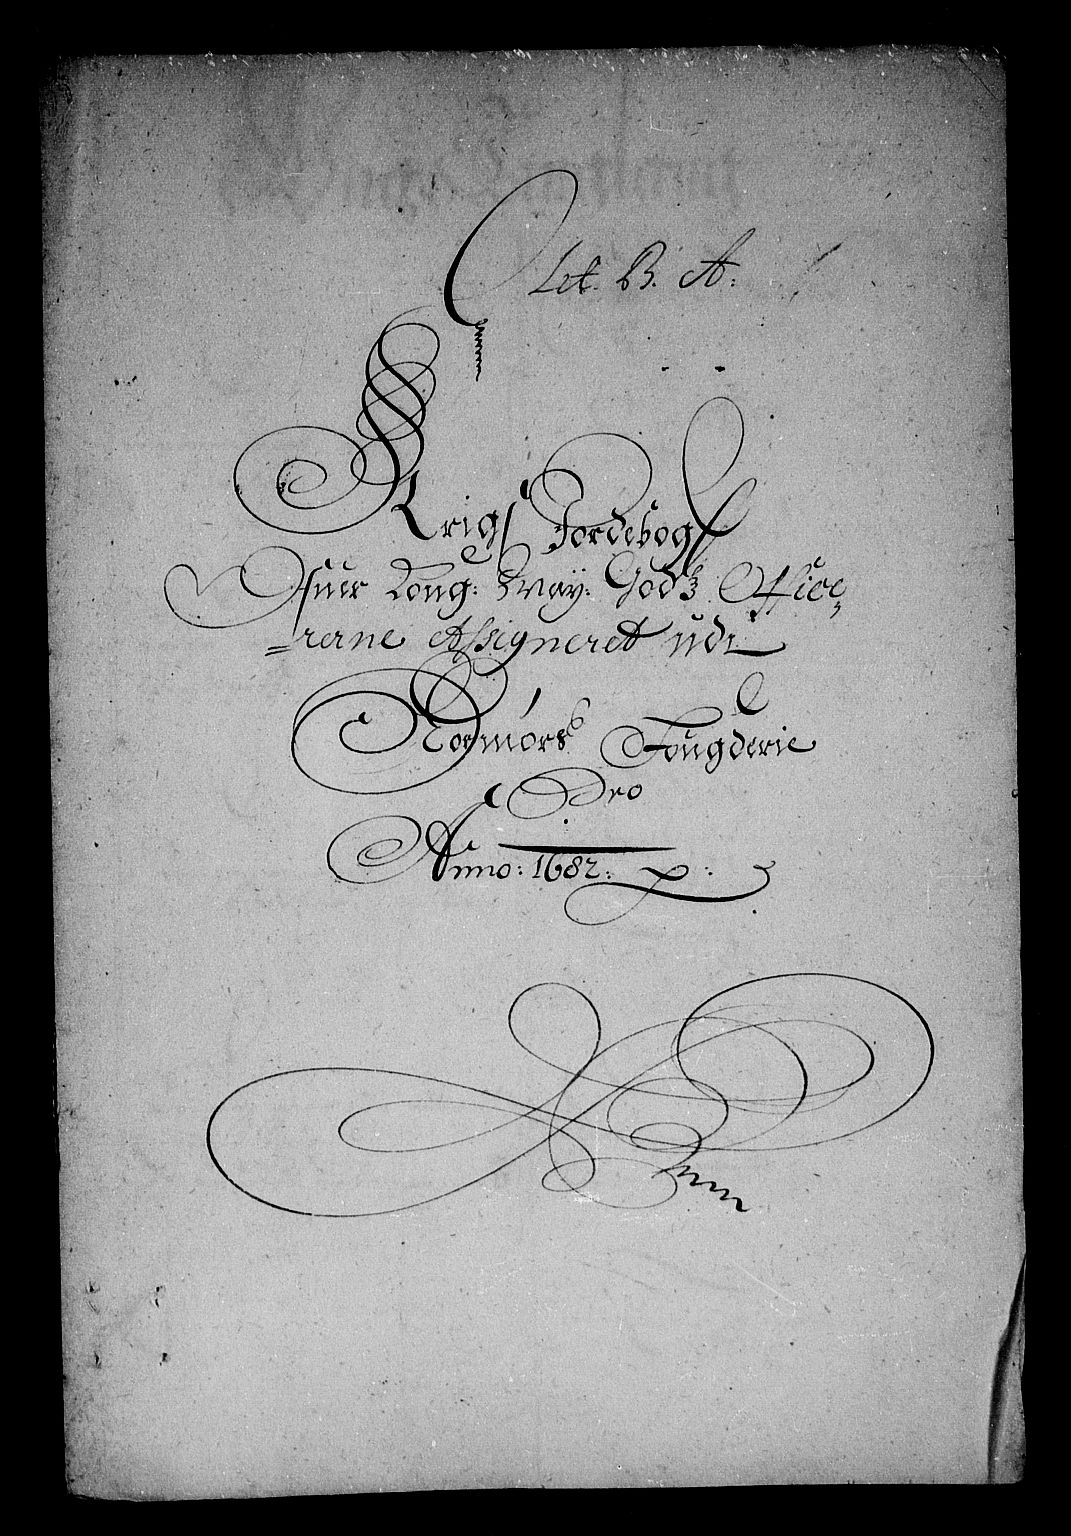 Let. B. A:
Krigs Jordebog
Ofuer Kong: May: Godz Office¬
=rerne Assigneret udi
Normørs Fougderie
Pro
Anno: 1682: